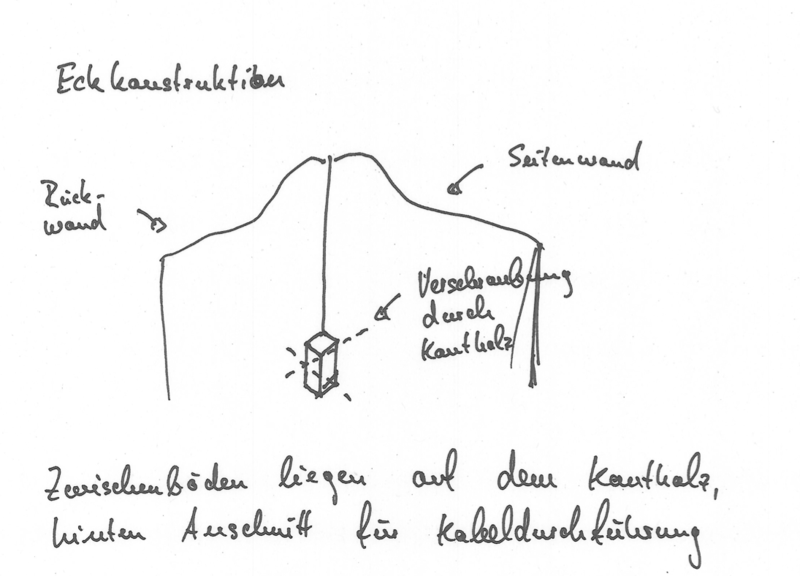 Eckkonstruktion
Seitenwand
Rück-
wand
Verschraubung
durch
Kantholz
Zwischenböden liegen auf dem Kantholz,
hinten Ausschnitt für Kabeldurchführung